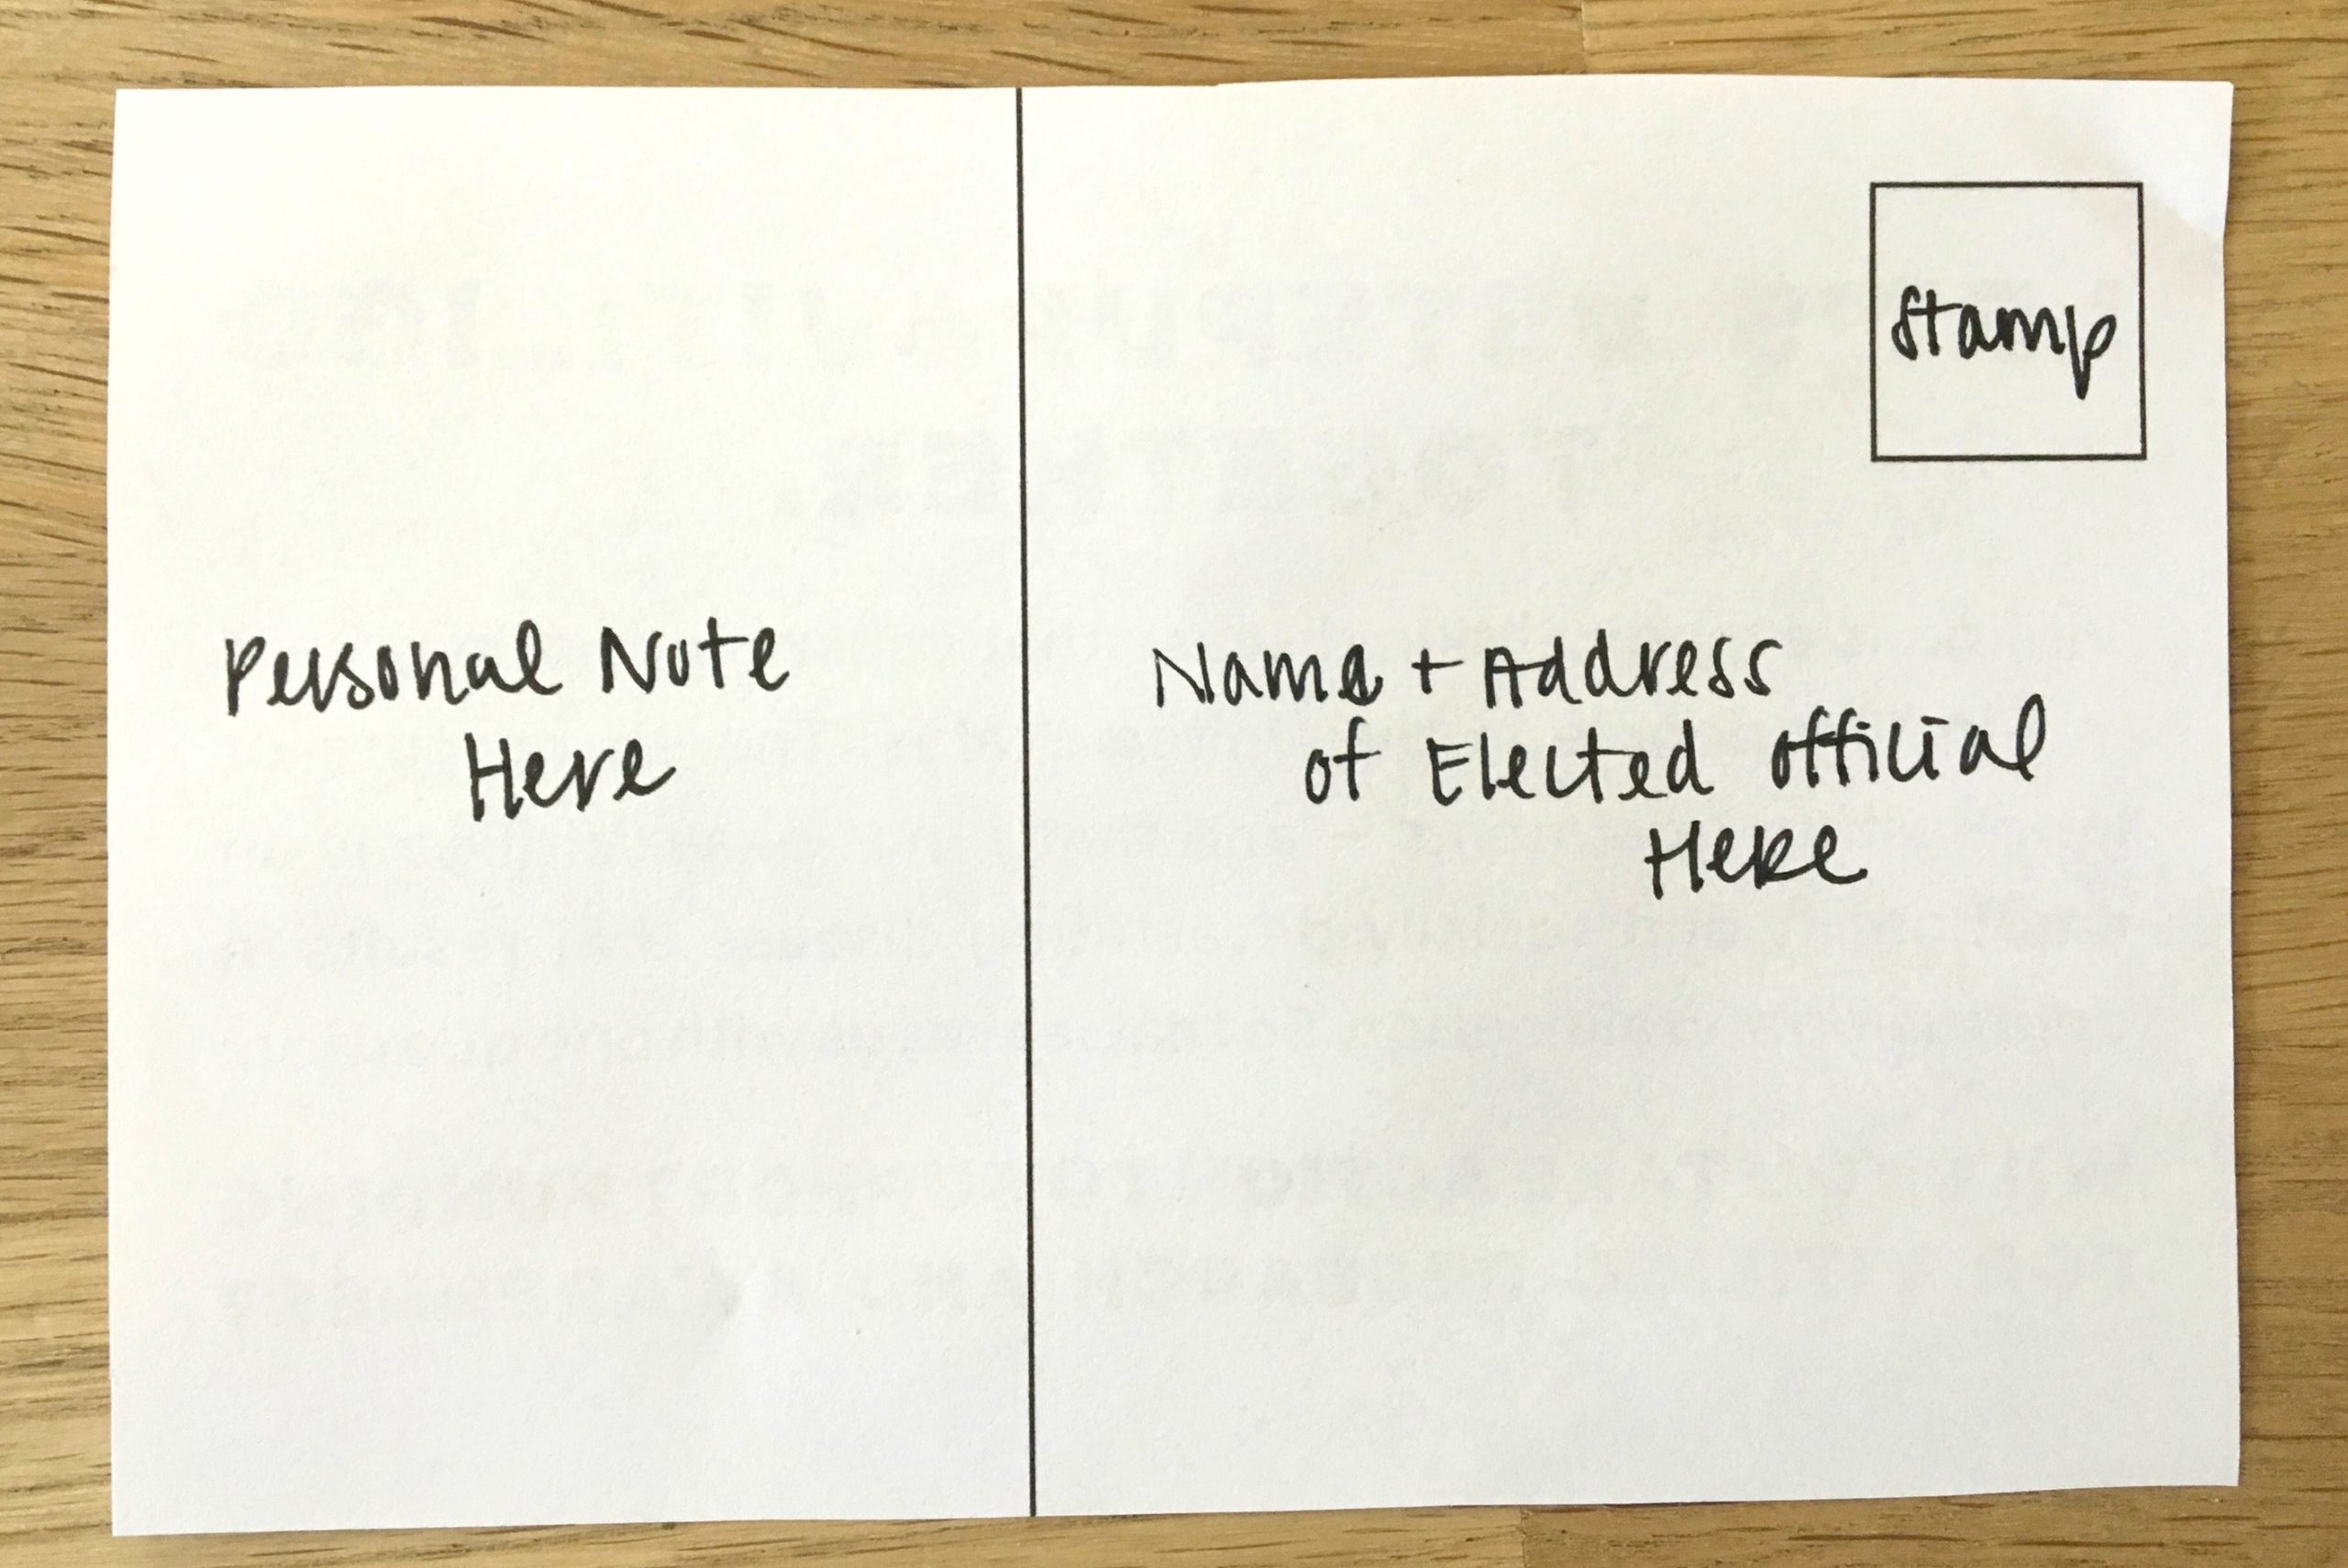 Personal Note
Here
Stamp
Name + Address
of Elected official
Here